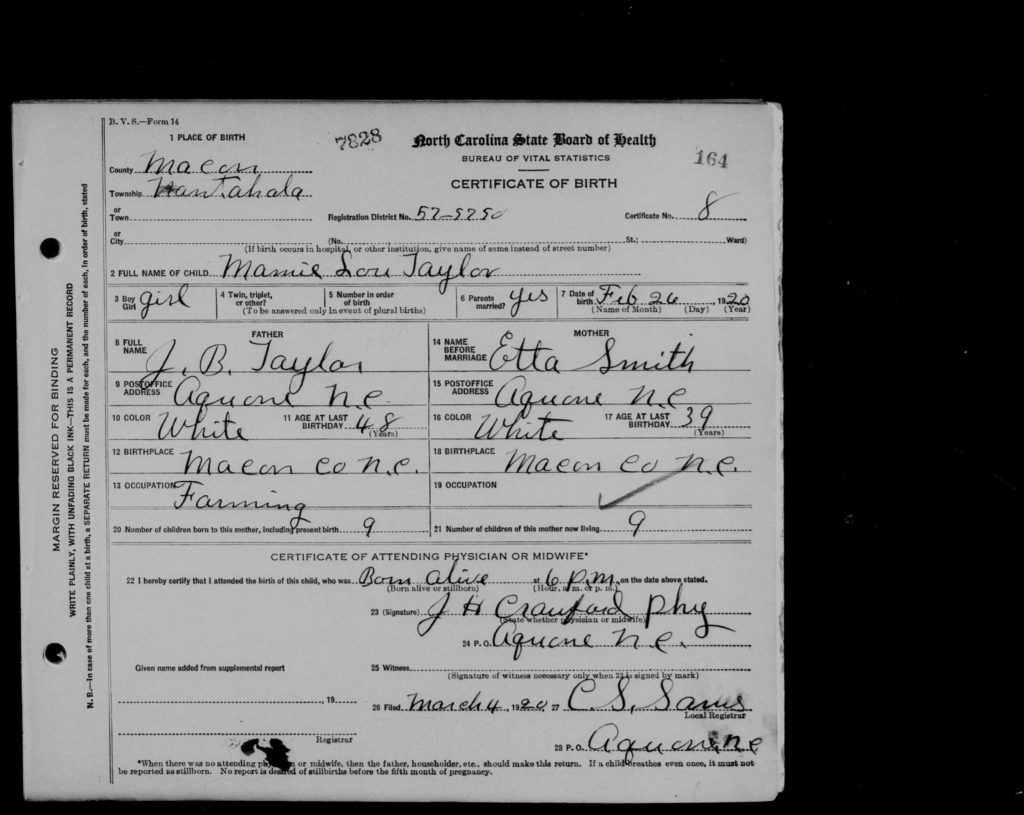 B. V. S.—Form 14
1 PLACE OF BIRTH
7828
North Carolina State Board of Health
BUREAU OF VITAL STATISTICS
164
CERTIFICATE OF BIRTH
County Macon
Township Nantahala
or Town
Registration District No. 57-5750
Certificate No. 8
or City (No. St.; Ward)
(If birth occurs in hospital, or other institution, give name of same instead of street number)
2 FULL NAME OF CHILD Mamie Lou Taylor
3 Boy Girl girl
4 Twin, triplet, or other?
5 Number in order of birth
(To be answered only in event of plural births)
6 Parents married? yes
7 Date of birth Feb 26, 1920
(Name of Month) (Day) (Year)
FATHER
8 FULL NAME J. B. Taylor
9 POSTOFFICE ADDRESS Aquone N.C.
10 COLOR White
11 AGE AT LAST BIRTHDAY 48 (Years)
12 BIRTHPLACE Macon Co N.C.
13 OCCUPATION Farming
MOTHER
14 NAME BEFORE MARRIAGE Etta Smith
15 POSTOFFICE ADDRESS Aquone N.C.
16 COLOR White
17 AGE AT LAST BIRTHDAY 39 (Years)
18 BIRTHPLACE Macon Co N.C.
19 OCCUPATION
20 Number of children born to this mother, including present birth 9
21 Number of children of this mother now living 9
CERTIFICATE OF ATTENDING PHYSICIAN OR MIDWIFE*
22 I hereby certify that I attended the birth of this child, who was Born alive at 6 P.M. on the date above stated.
(Born alive or stillborn) (Hour, a. m. or p. m.)
23 (Signature) J H Crawford Phy
(State whether physician or midwife)
24 P. O. Aquone N.C.
Given name added from supplemental report
25 Witness
(Signature of witness necessary only when 23 is signed by mark)
, 19
26 Filed March 4, 1920, 27 C. S.
Local Registrar
Registrar
28 P. O. Aquone, N.C.
*When there was no attending physician or midwife, then the father, householder, etc., should make this return. If a child breathes even once, it must not
be reported as stillborn. No report is desired of stillbirths before the fifth month of pregnancy.
MARGIN RESERVED FOR BINDING
WRITE PLAINLY, WITH UNFADING BLACK INK—THIS IS A PERMANENT RECORD
N. B.—In case of more than one child at a birth, a SEPARATE RETURN must be made for each, and the number of each, in order of birth, stated